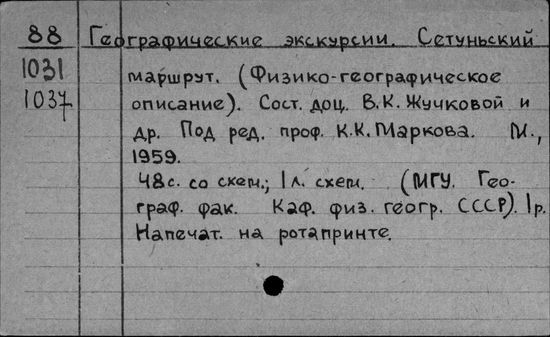 88 Географические экскурсии. Сетуньский
1031 маршрут. (Физико-географическое
1037 описание). Сост. доц. В.К. Жучковой и
др. Под ред. проф. К.К. Маркова. М.,
1959.
48 с. со схем.; 1 л. схем. (МГУ. Гео-
граф. фак. Каф. физ. геогр. СССР). 1 р.
Напечат. на ротапринте.